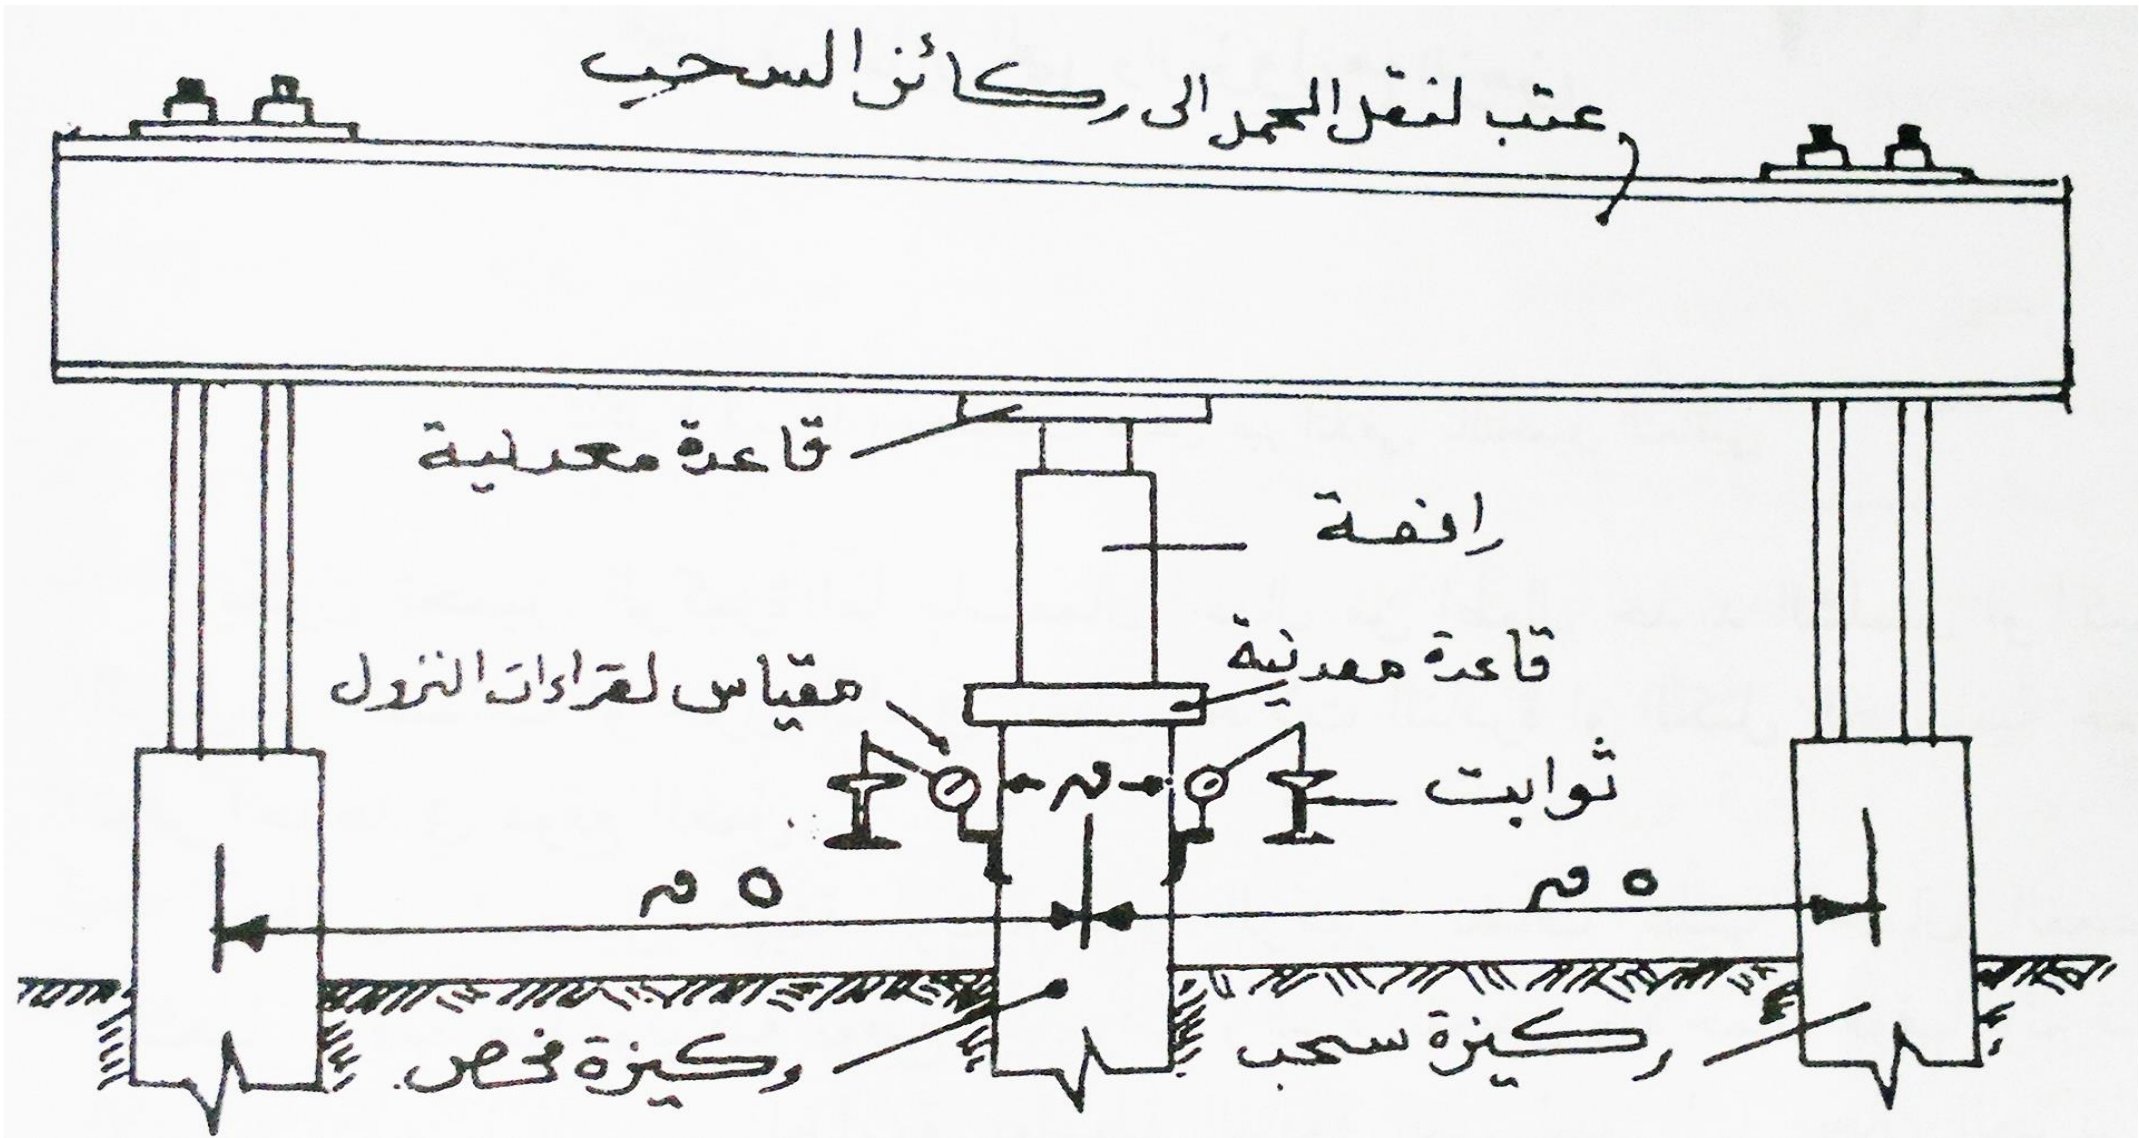 عتب لنقل الحمل الى ركائز السحب
قاعدة معدنية
رافعة
قاعدة معدنية
مقياس لقراءات النزول
ثوابت
ق
٥ ق
٥ ق
ركيزة سحب
ركيزة فحص